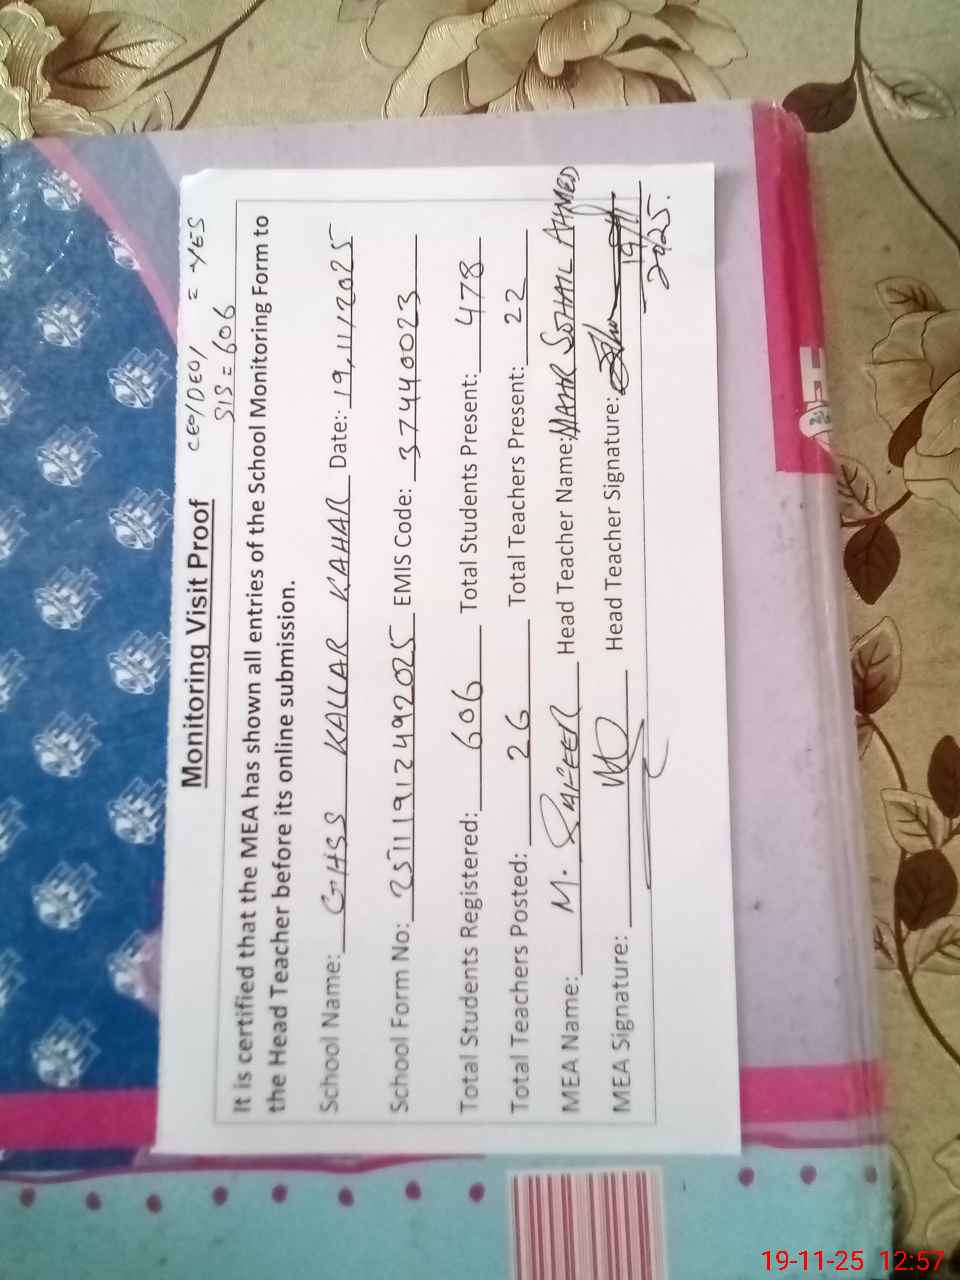 CEO/DEO/ = YES
Monitoring Visit Proof SIS = 606
It is certified that the MEA has shown all entries of the School Monitoring Form to
the Head Teacher before its online submission.
School Name: GHSS KALLAR KAHAR Date: 19/11/2025
School Form No: 25111912492025 EMIS Code: 37440023
Total Students Registered: 606 Total Students Present: 478
Total Teachers Posted: 26 Total Teachers Present: 22
MEA Name: M. Head Teacher Name: MAHR SOHAIL AHMED
MEA Signature: Head Teacher Signature:
19/11
2025.
19-11-25 12:57